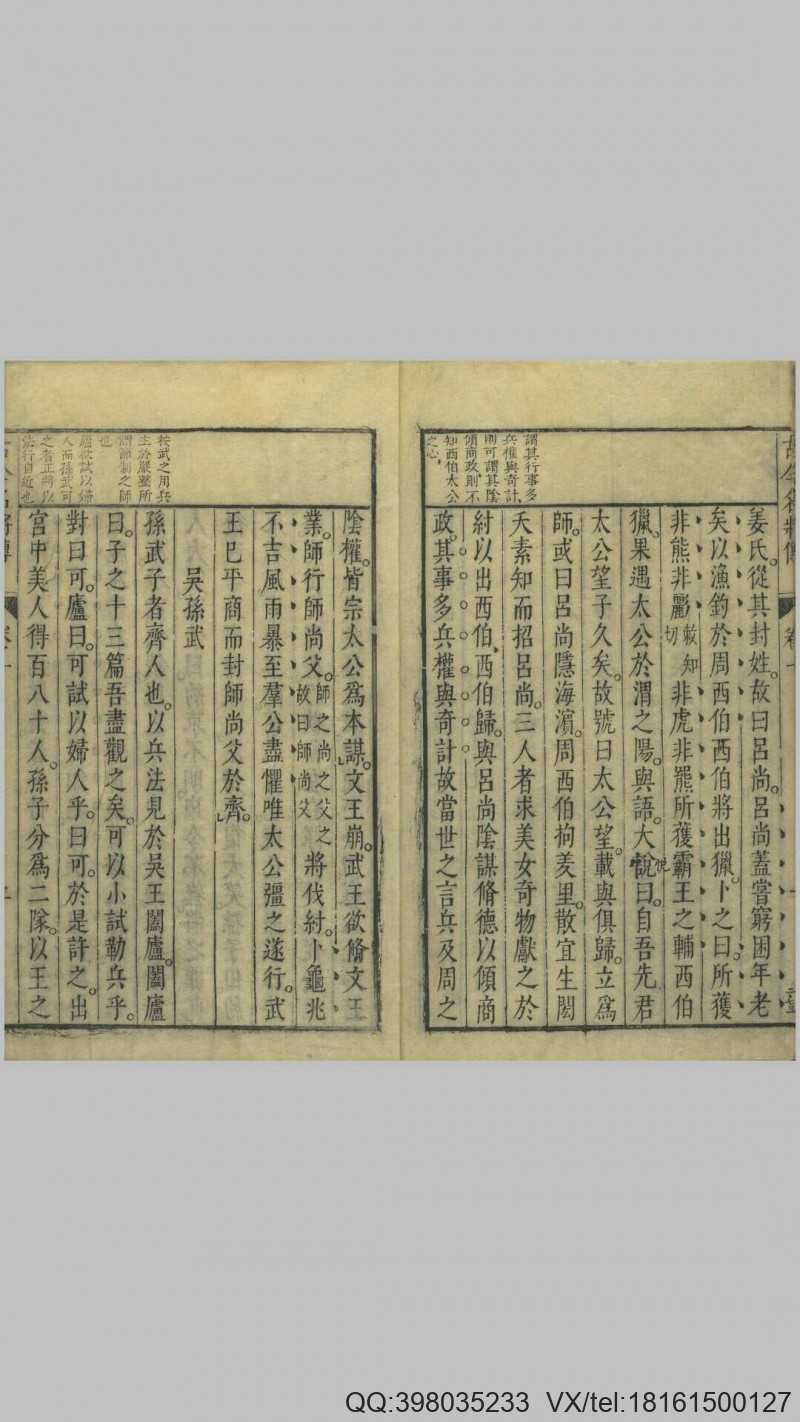 謂其行事多
兵權與奇計
則可謂其陰
傾商政則不
知西伯太公
之心
姜氏。從其封姓。故曰呂尚。呂尚蓋嘗窮困年老
矣以漁釣於周西伯西伯將出獵。卜之曰。所獲
非熊非羆
敕知
切
非虎非羆所獲霸王之輔西伯
獵。果遇太公於渭之陽。與語。大悅曰。自吾先君
太公望子久矣。故號曰太公望。載與俱歸。立爲
師。或曰呂尚隱海濱。周西伯拘羑里。散宜生閎
夭素知而招呂尚。三人者求美女奇物獻之於
紂以出西伯、西伯歸。與呂尚陰謀脩德以傾商
政。其事多兵權與奇計故當世之言兵及周之
按武之用兵
主於嚴整所
謂節制之師
也
人而孫武可
之者正將以
陰權。皆宗太公爲本謀。文王崩。武王欲脩文王
業。師行師尚父。
師之尚之父之
故曰師尚父
將伐紂。卜龜兆
不吉風雨暴至羣公盡懼唯太公彊之遂行。武
王已平商而封師尚父於齊。
吳孫武
孫武子者齊人也。以兵法見於吳王闔廬。闔廬
曰。子之十三篇吾盡觀之矣。可以小試勒兵乎。
對曰可。廬曰。可試以婦人乎。曰可。於是許之。出
宮中美人得百八十人。孫子分爲二隊。以王之
QQ:398035233 VX/tel:18161500127